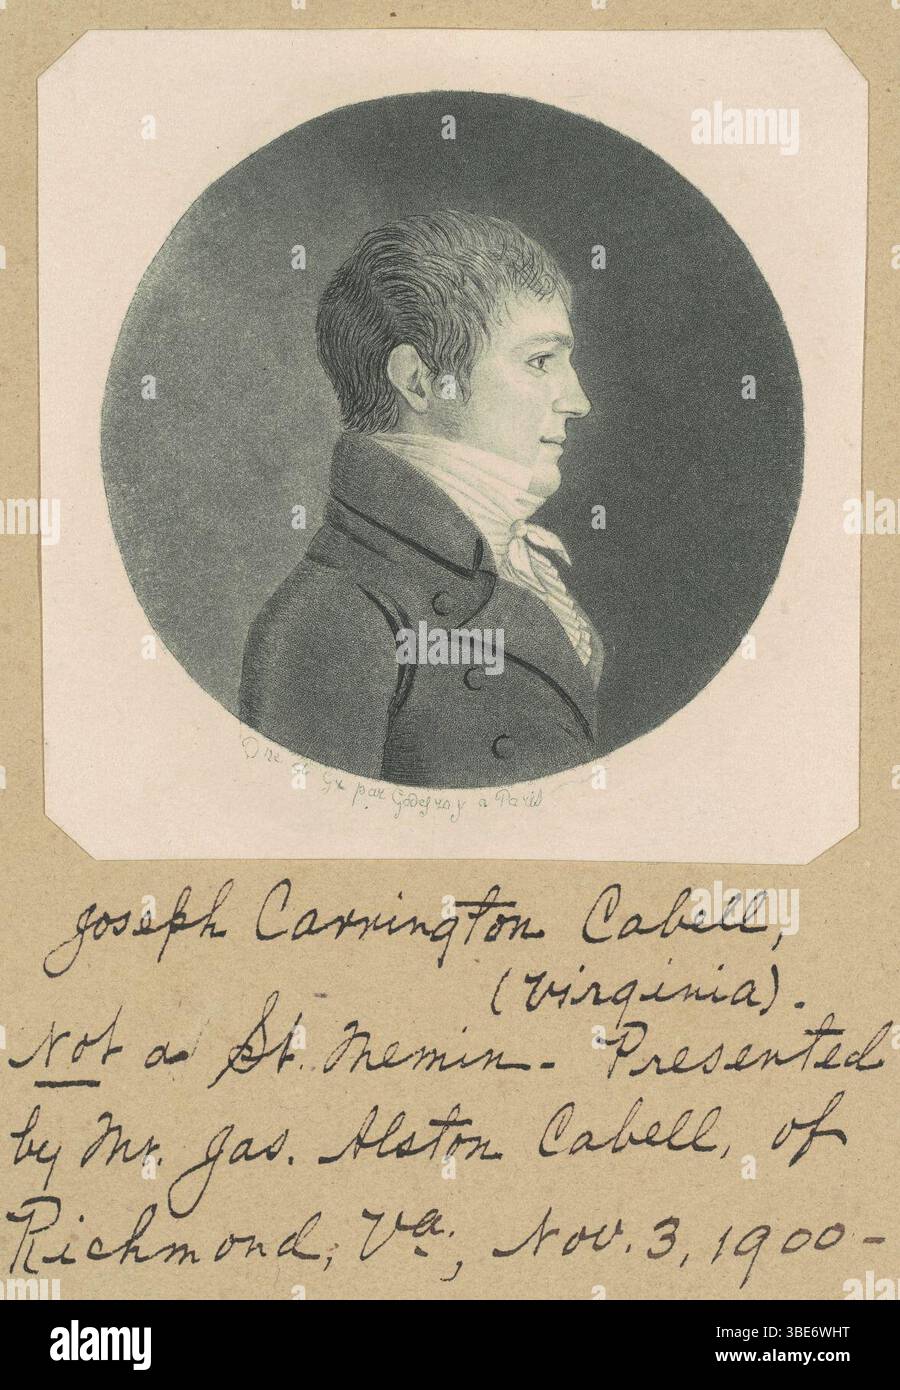 alamy
Dne et Gr par Godefroy à Paris
Joseph Carrington Cabell,
(Virginia).
Not a St. Memin - Presented
by Mr. Jas. Alston Cabell, of
Richmond, Va., Nov. 3, 1900 -
alamy
Image ID: 3BE6WHT
www.alamy.com